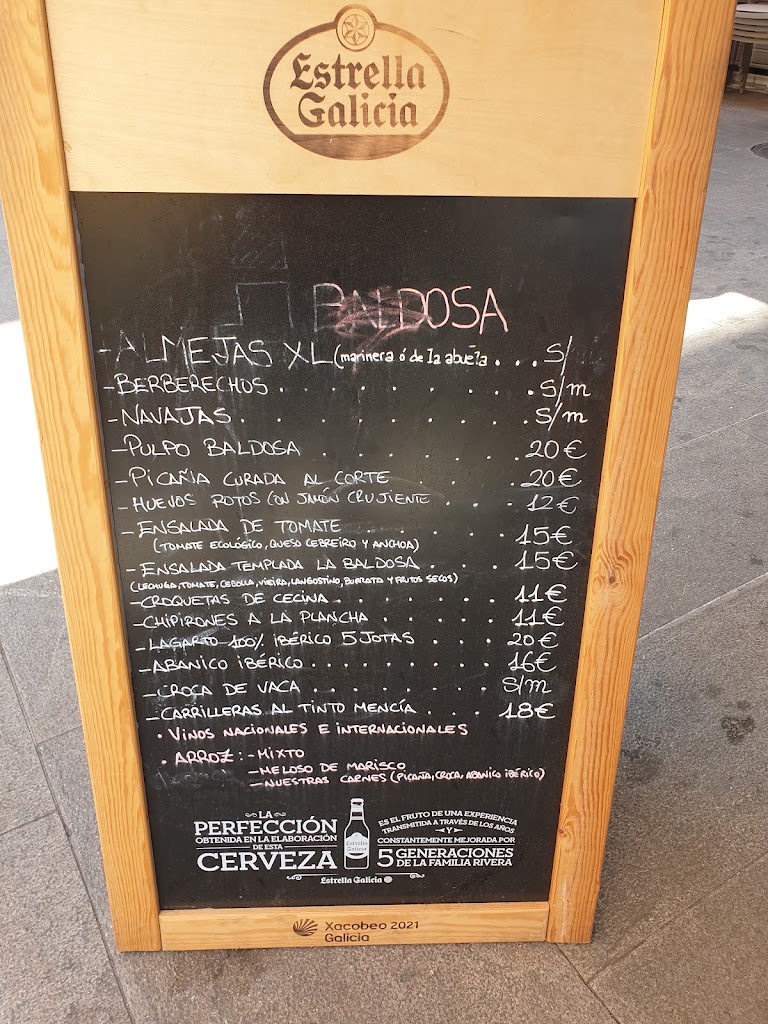 Estrella
Galicia
BALDOSA
- ALMEJAS XL (marinera ó de la abuela . . . S/
- BERBERECHOS . . . . . . . . . S/m
- NAVAJAS . . . . . . . . . . S/m
- PULPO BALDOSA . . . . . . . 20€
- PICAÑA CURADA AL CORTE . . . . 20€
- HUEVOS ROTOS CON JAMÓN CRUJIENTE . . . 12€
- ENSALADA DE TOMATE . . . . . 15€
(TOMATE ECOLÓGICO, QUESO CEBREIRO Y ANCHOA)
- ENSALADA TEMPLADA LA BALDOSA . . . . 15€
(LECHUGA, TOMATE, CEBOLLA, VIEIRA, LANGOSTINO, BURRATA Y FRUTOS SECOS)
- CROQUETAS DE CECINA . . . . . . 11€
- CHIPIRONES A LA PLANCHA . . . . . 11€
- LAGARTO 100% IBÉRICO 5 JOTAS . . . . 20€
- ABANICO IBÉRICO . . . . . . . . 16€
- CROCA DE VACA . . . . . . . . S/M
- CARRILLERAS AL TINTO MENCÍA . . . 18€
• VINOS NACIONALES E INTERNACIONALES
• ARROZ: - MIXTO
- MELOSO DE MARISCO
- NUESTRAS CARNES (PICAÑA, CROCA, ABANICO IBÉRICO)
LA
PERFECCIÓN
OBTENIDA EN LA ELABORACIÓN
DE ESTA
CERVEZA
Estrella
Galicia
ES EL FRUTO DE UNA EXPERIENCIA
TRANSMITIDA A TRAVÉS DE LOS AÑOS
Y
CONSTANTEMENTE MEJORADA POR
5 GENERACIONES
DE LA FAMILIA RIVERA
Estrella Galicia
Xacobeo 2021
Galicia